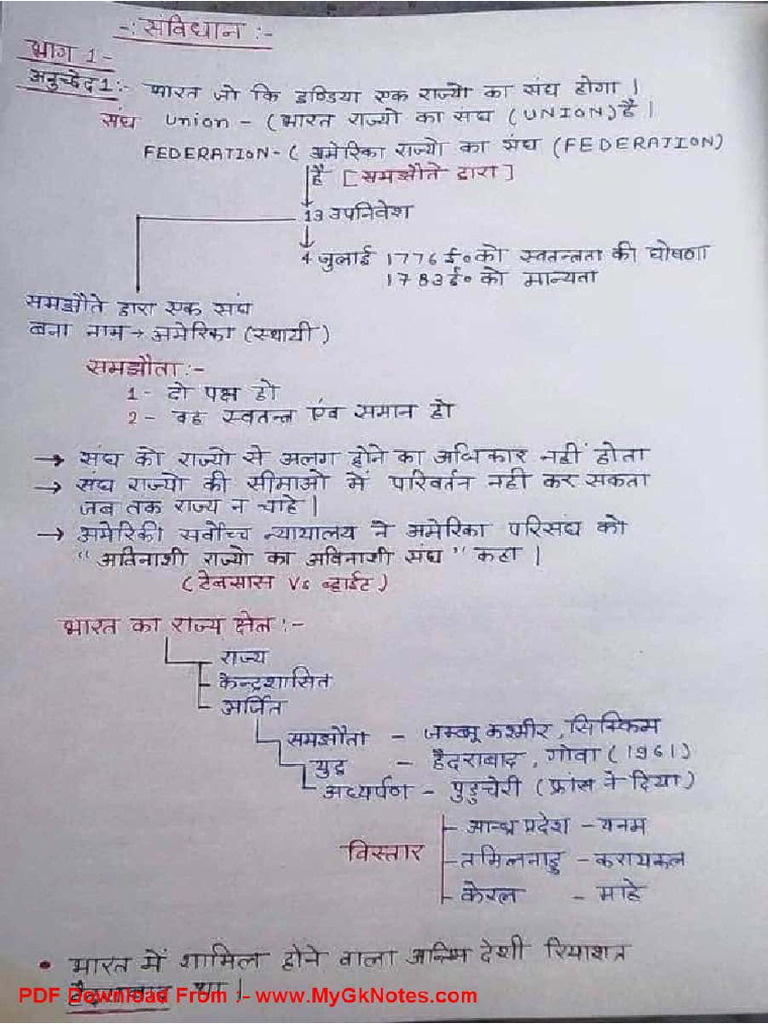 -: संविधान :-
भाग 1-
अनुच्छेद 1:- भारत जो कि इण्डिया एक राज्यो का संघ होगा।
संघ Union - (भारत राज्यो का संघ (UNION) है।
FEDERATION - ( अमेरिका राज्यो का संघ (FEDERATION)
है [समझौते द्वारा]
13 उपनिवेश
4 जुलाई 1776 ई० को स्वतन्त्रता की घोषणा
1783 ई० को मान्यता
समझौते द्वारा एक संघ
बना नाम → अमेरिका (स्थायी)
समझौता :-
1 - दो पक्ष हो
2 - वह स्वतन्त्र एंव समान हो
→ संघ को राज्यो से अलग होने का अधिकार नहीं होता
→ संघ राज्यो की सीमाओ में परिवर्तन नही कर सकता
जब तक राज्य न चाहे।
→ अमेरिकी सर्वोच्च न्यायालय ने अमेरिका परिसंघ को
"अविनाशी राज्यो का अविनाशी संघ" कहा।
(टेक्सास Vs व्हाईट)
भारत का राज्य क्षेत्र :-
राज्य
केन्द्रशासित
अर्जित
समझौता - जम्मू कश्मीर, सिक्किम
युद्ध - हैदराबाद, गोवा (1961)
अध्यर्पण - पुडुचेरी (फ्रांस ने दिया)
विस्तार
आन्ध्र प्रदेश - यनम
तमिलनाडु - करायकल
केरल - माहे
• भारत में शामिल होने वाला अन्तिम देशी रियाशत
हैदराबाद था।
PDF Download From :- www.MyGkNotes.com